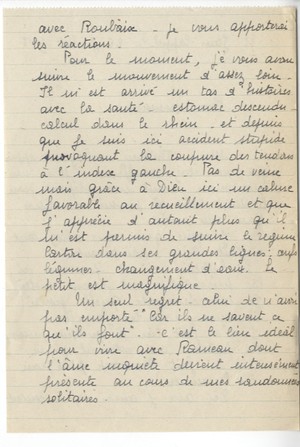 avec Roubaix - je vous apporterai
les réactions.
Pour le moment, j'ai vous avoue
suivre le mouvement d'assez loin.
Il m'est arrivé un tas d'histoires
avec la santé. estomac descendu
calcul dans le rhein - et depuis
que je suis ici accident stupide
provoquant la coupure des tendons
à l'index gauche. Pas de veine
mais grâce à Dieu ici un calme
favorable au recueillement et que
j'apprécie d'autant plus qu'il
m'est permis de suivre le régime
Carton dans ses grandes lignes. œufs
légumes - changement d'eau. Le
petit est magnifique.
Un seul regret - celui de n'avoir
pas emporté "Car ils ne savent ce
qu'ils font" - c'est le lieu idéal
pour vivre avec Rameau dont
l'âme inquiète devient intensément
présente au cours de mes randonnées
solitaires.